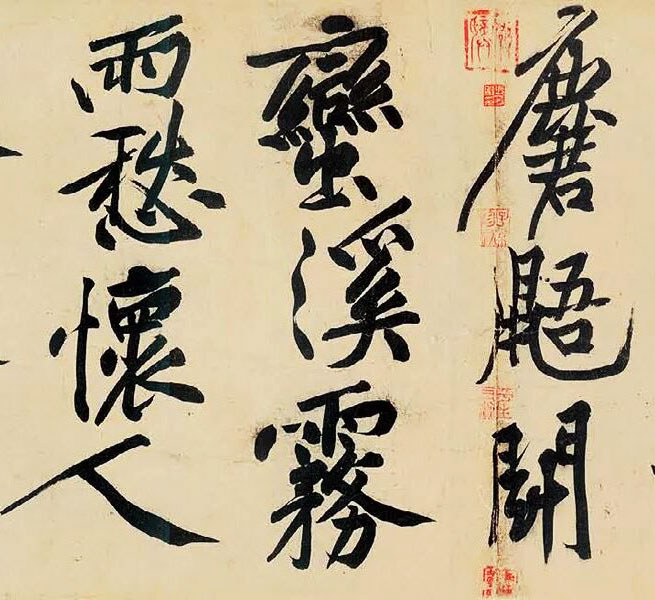 麏鼯鬪
蠻溪霧
雨愁懷人